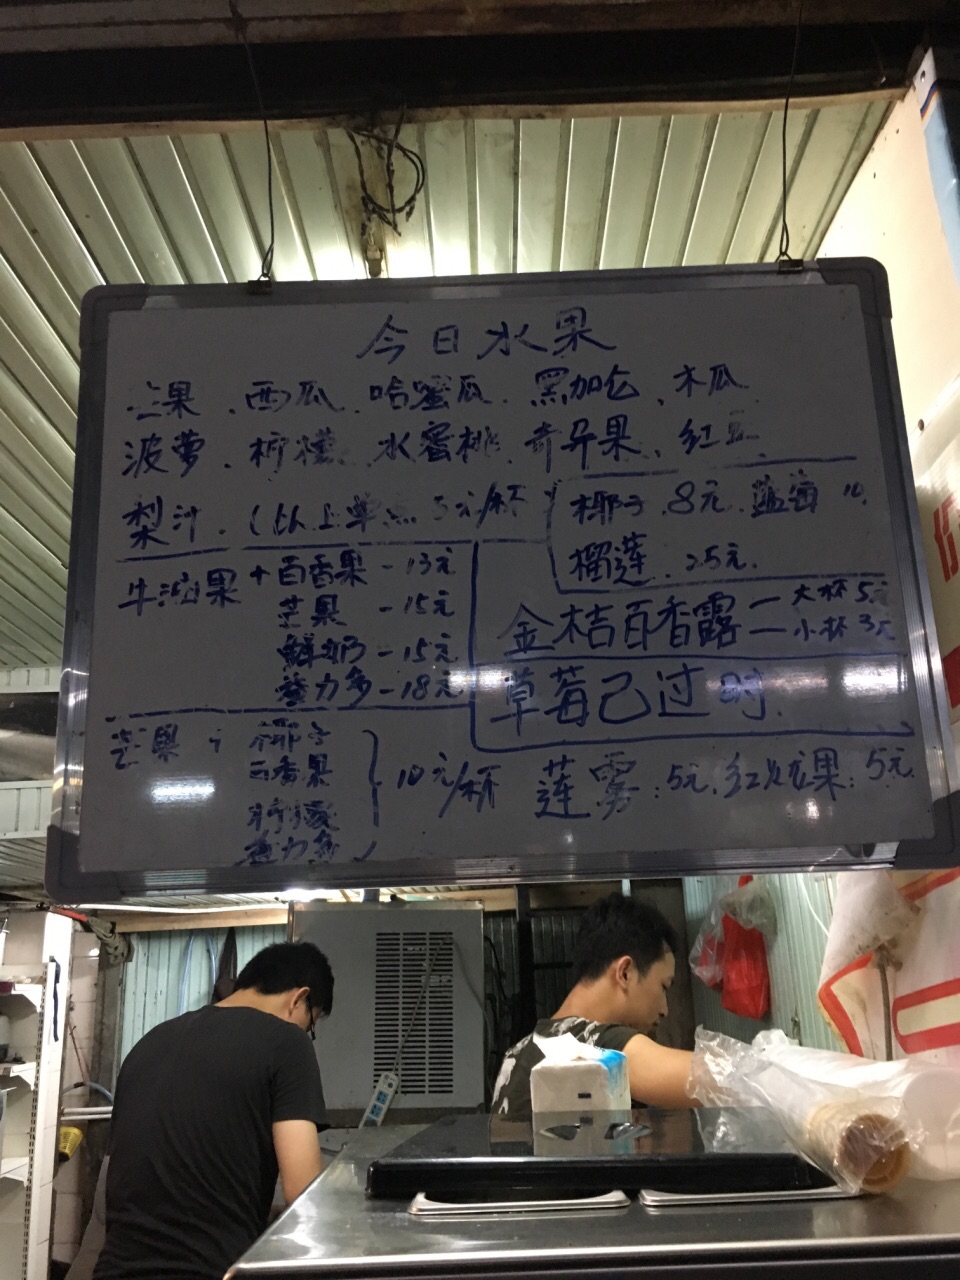 今日水果
芒果、西瓜、哈蜜瓜、黑加仑、木瓜
菠萝、柠檬、水蜜桃、奇异果、红豆
梨汁、(以上单点5元/杯
椰子、8元、蓝莓10、
榴莲、25元、
牛油果+百香果-13元
芒果-15元
鲜奶-15元
益力多-18元
金桔百香露—大杯5元
—小杯3元
草莓已过时.
芒果+椰子
百香果
益力多
10元/杯
莲雾:5元、红火龙果:5元.